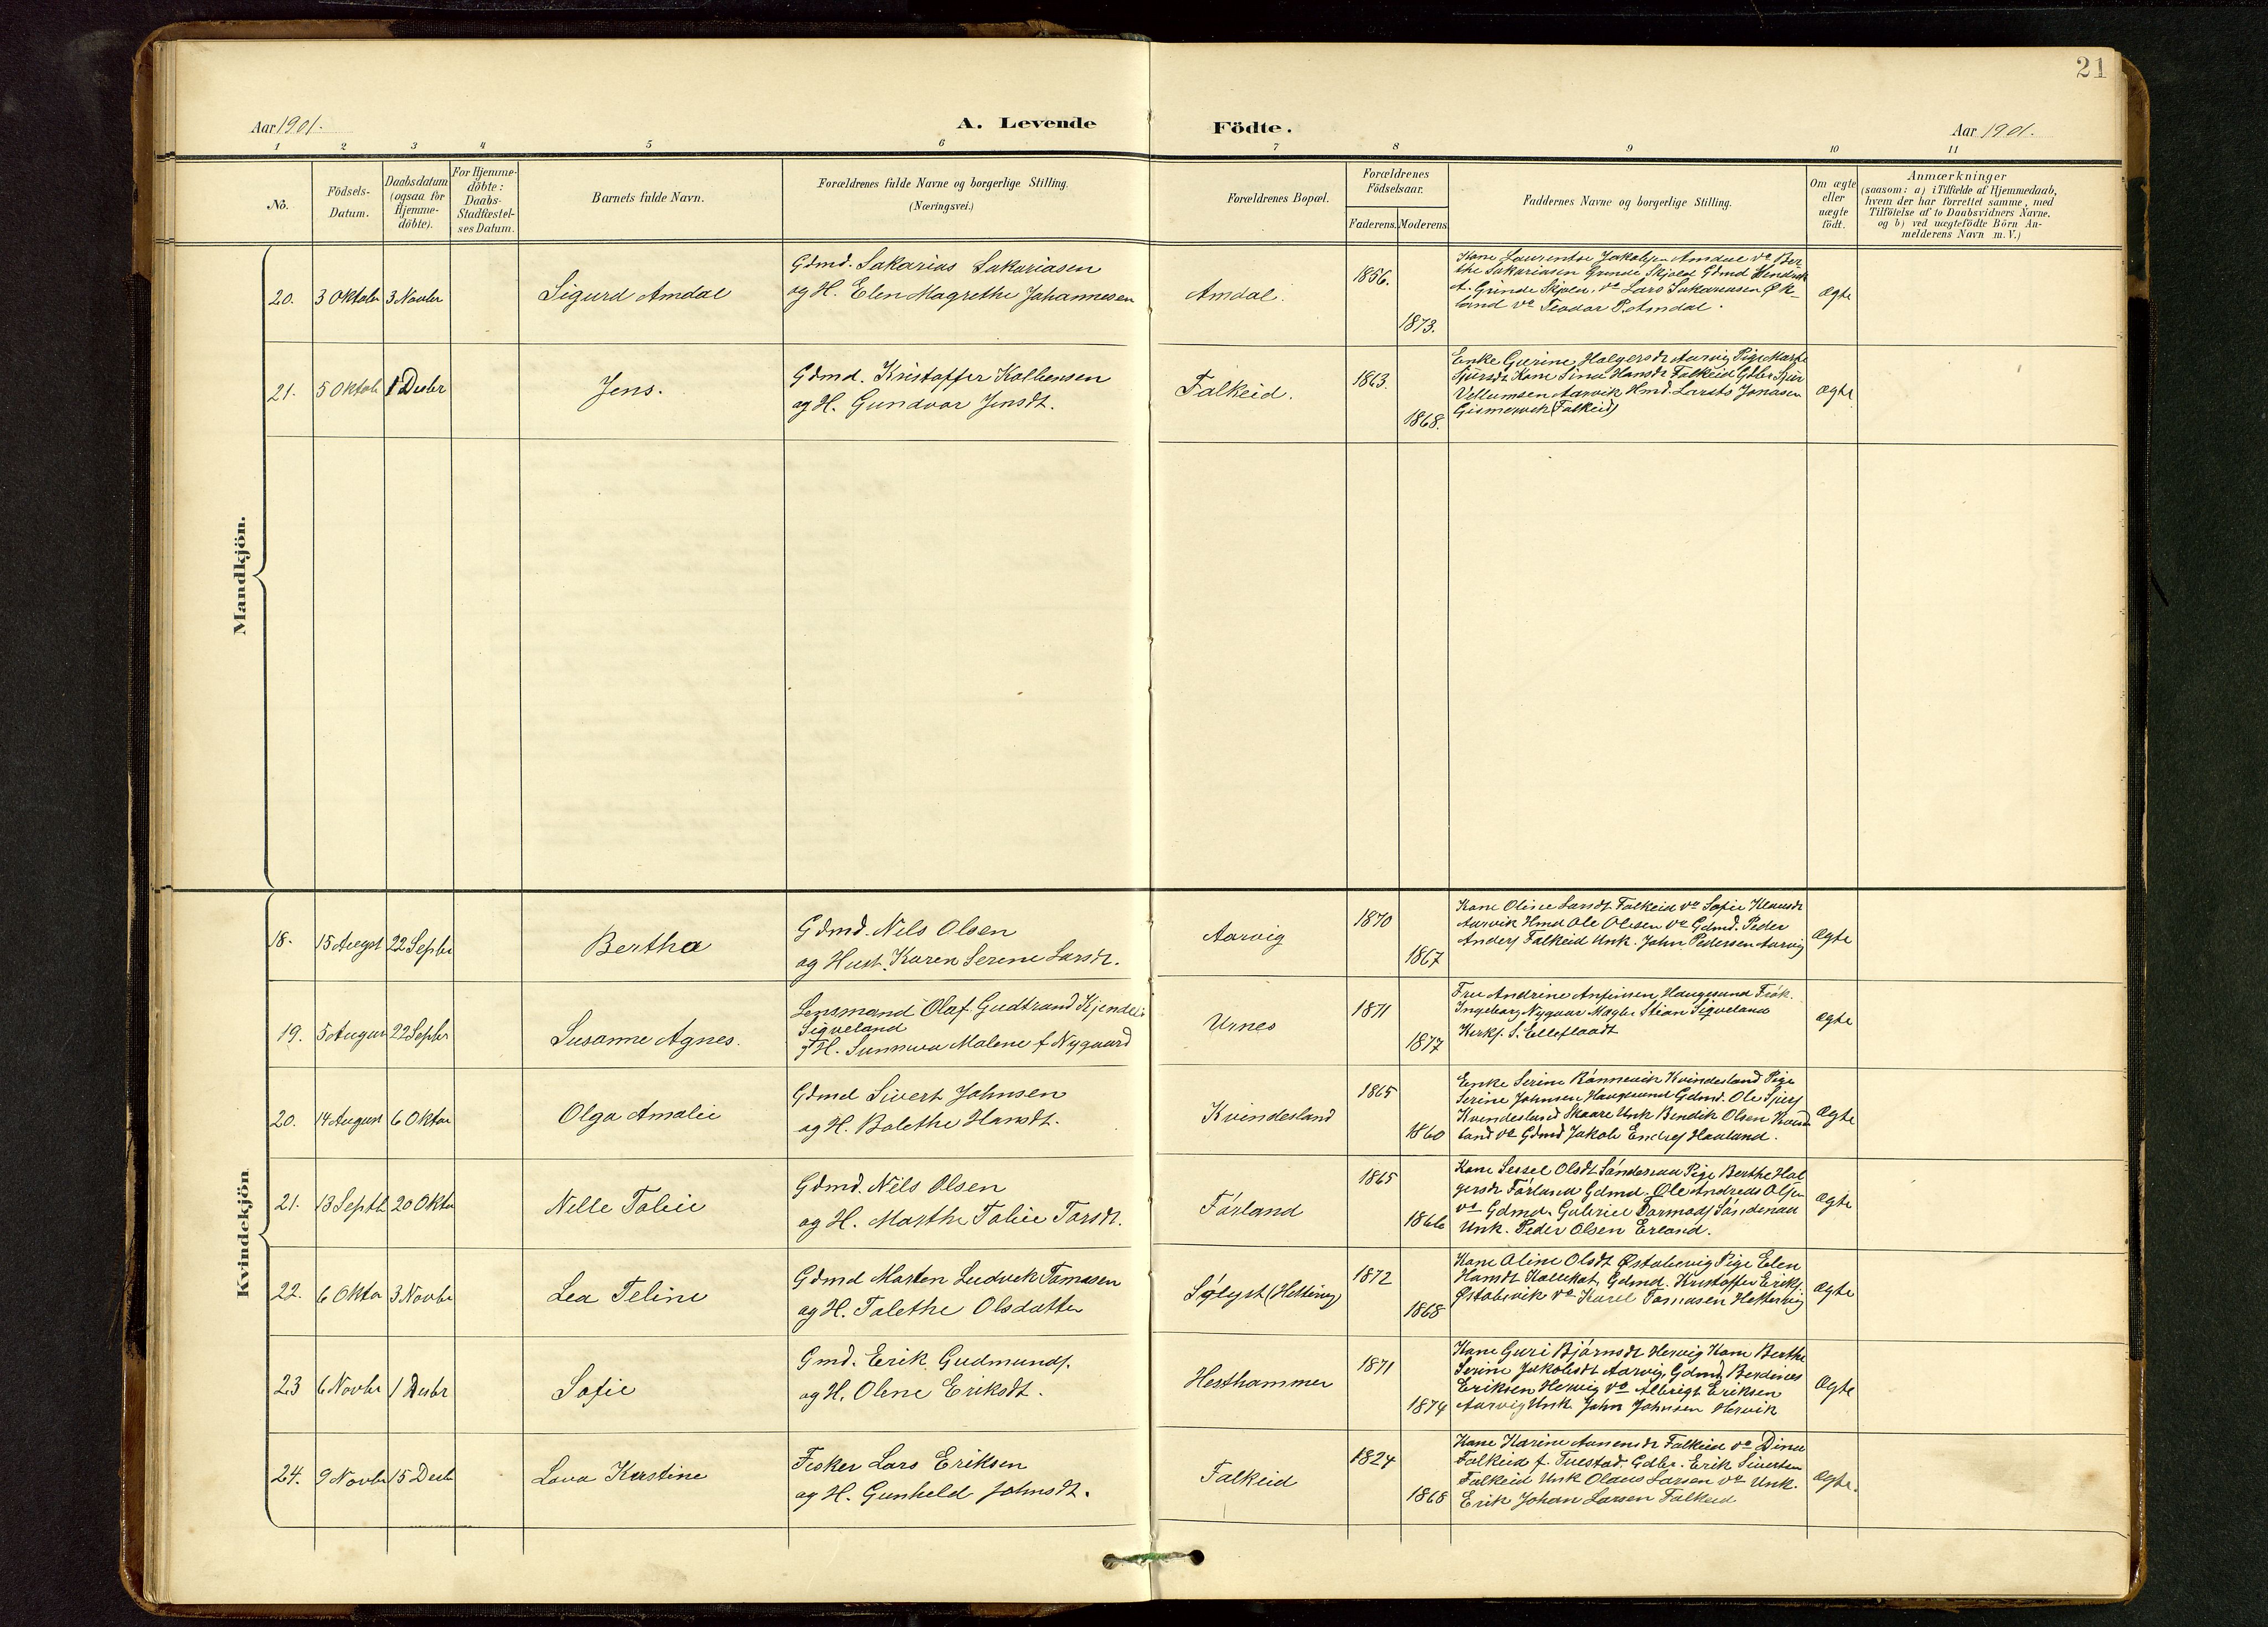 21
Aar 1901.
A. Levende Födte.
Aar 1901.
1 2 3 4 5 6 7 8 9 10 11
No.
Födsels-
Datum.
Daabsdatum
(ogsaa for
Hjemme-
döbte).
For Hjemme-
döbte:
Daabs-
Stadfæstel-
ses Datum.
Barnets fulde Navn.
Forældrenes fulde Navne og borgerlige Stilling.
(Næringsvei.)
Forældrenes Bopæl.
Forældrenes
Födselsaar.
Faderens. Moderens
Faddernes Navne og borgerlige Stilling.
Om ægte
eller
uægte
födt.
Anmærkninger
(saasom: a) i Tilfælde af Hjemmedaab,
hvem der har forrettet samme, med
Tilföielse af to Daabsvidners Navne.
og b) ved uægtefödte Börn An-
melderens Navn m. V.)
Mandkjön.
20. 3 Oktober 3 Novbr
Sigurd Amdal
Gdmd. Sakarias Sakariasen
og H. Elen Magrethe Johannesen
Amdal.
1856.
1873.
Kone Jakobsen Amdal do Ber-
the Sakariasen Grinde Skjold Gdmd Hendrik
A. Grinde Skjold. do Lars Sakariasen Øk-
land do Teodor P. Amdal.
Ægte
21. 5 Oktob 1 Decbr
Jens.
Gdmd. Kristoffer Kolbensen
og H. Gundvor Jensdt.
Falkeid.
1863.
1868.
Enke Gurine Holgersdt Aarvig Pige Marthe
Sjursdt Kone Sina Hansdt Falkeid Gdbr Sjur
Villumsen Aarvik Hmd. Jonasen
Gismervik (Falkeid)
Ægte
Kvindekjön
18. 15 Augst 22 Septbr
Bertha
Gdmd. Nils Olsen
og Hust. Karen Serene Larsdt.
Aarvig
1870
1867
Kone Oline Larsdt Falkeid do Sofie Klausdt
Aarvik Hmd Ole Olsen do Gdmd. Peder
Anders Falkeid Unk. John Pedersen Aarvig
Ægte
19. 5 August 22 Septbr
Susanne Agnes.
Lensmand Olaf Gudtrand Kjendel.
Sigveland
og H. Sunniva Malene f Nygaard
Urnes
1871
1877
Fru Andrine Anfinsen Haugesund Frök.
Ingeborg Nygaar Mægler Stian Sigveland
Kirks. S. Elleflaadt
Ægte
20. 14 August 6 Oktor
Olga Amalie
Gdmd Sivert Johnsen
og H. Bolethe Hansdt.
Kvindesland
1865
1860
Enke Serine Rönnevik Kvindesland Pige
Serine Johnsen Haugesund Gdmd. Ole Sjurs
Kvindesland Skaare Unk Bendik Olsen Kvind
land do Gdmd Jakob Endres Hauland.
Ægte
21. 13 Septb 20 Oktr
Nelle Toline
Gdmd. Nils Olsen
og H. Marthe Toline Torsdt.
Förland
1865
1866
Kone Sessel Olsdt Söndenaa Pige Berthe Hol
gersdt Förland Gdmd. Ole Andreas Olsen
do Gdmd. Gabriel Tormods Söndenaa
Unk. Peder Olsen Erland.
Ægte
22. 6 Oktor 3 Novbr
Lea Teline
Gdmd Morten Ludvik Tomasen
og H. Talethe Olsdatter
Sölyst (Hetting)
1872
1868
Kone Oline Olsdt Østabøvig Pige Elen
Hansdt Kallekot. Gdmd. Kristoffer Eriks
Østabøvik do Karel Tomasen Hettervig
Ægte
23 6 Novbr 1 Decbr
Sofie
Gmd. Erik Gudmunds.
og H. Olene Eriksdt.
Hesthammer
1871
1874
Kone Guri Bjørnsdt Hervig Kone Berthe
Serine Jakobsdt Aarvig Gdmd Berdines
Eriksen Hervig do Albrigt Eriksen
Aarvig Unk John Johnsen Hervik
Ægte
24. 9 Novbr 15 Decb
Lova Kirstine
Fisker Lars Eriksen
og H. Gunheld Johnsdt.
Falkeid
1824
1868
Kone Karine Aanensdt Falkeid do Dina
Falkeid f. Tuestad. Gdbr. Erik Siverten
Falkeid Unk Olaus Larsen do Unk.
Erik Johan Larsen Falkeid
Ægte.